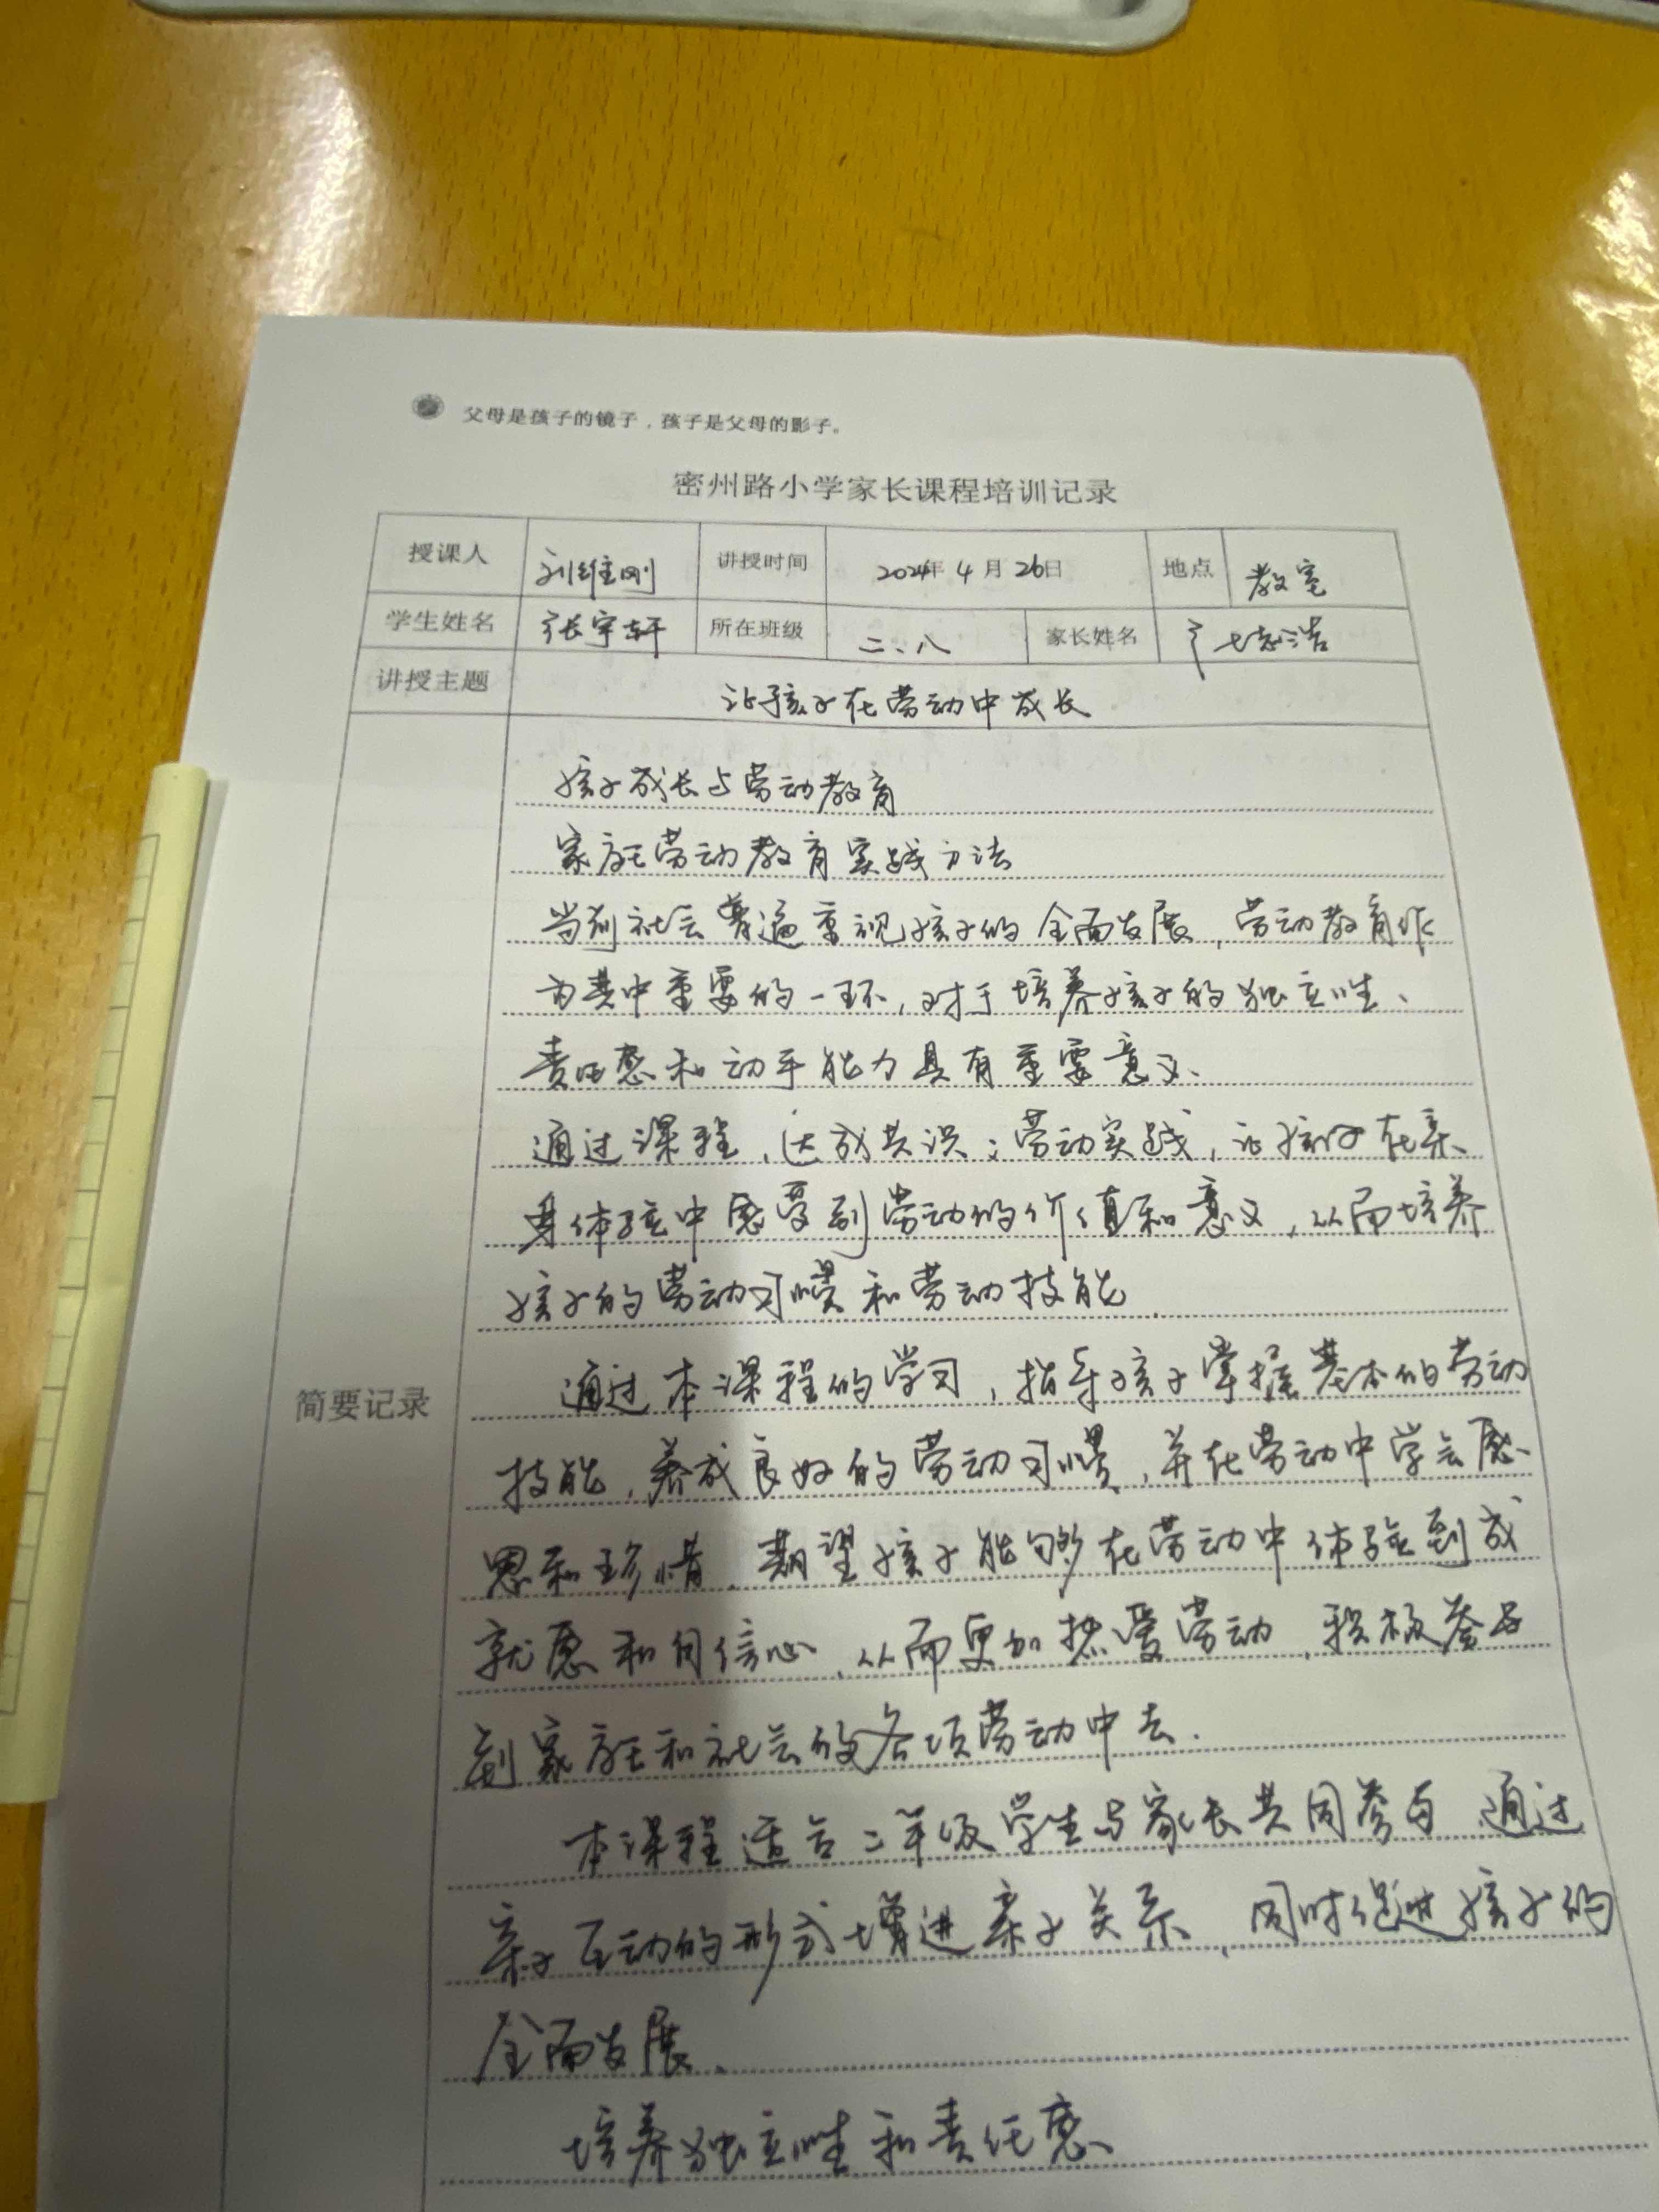 父母是孩子的镜子，孩子是父母的影子。
密州路小学家长课程培训记录
授课人 刘维刚 讲授时间 2024年 4 月 26日 地点 教室
学生姓名 张宇轩 所在班级 二、八 家长姓名 志浩
讲授主题 让孩子在劳动中成长
简要记录
孩子成长与劳动教育
家庭劳动教育实践方法
当前社会普遍重视孩子的全面发展，劳动教育作
为其中重要的一环，对于培养孩子的独立性、
责任感和动手能力具有重要意义、
通过课程，达成共识；劳动实践，让孩子在亲
身体验中感受到劳动的价值和意义，从而培养
孩子的劳动习惯和劳动技能.
通过本课程的学习，指导孩子掌握基本的劳动
技能，养成良好的劳动习惯，并在劳动中学会感
恩和珍惜，期望孩子能够在劳动中体验到成
就感和自信心，从而更加热爱劳动，积极参与
到家庭和社会的各项劳动中去.
本课程适合二年级学生与家长共同参与，通过
亲子互动的形式增进亲子关系，同时促进孩子的
全面发展、
培养独立性和责任感